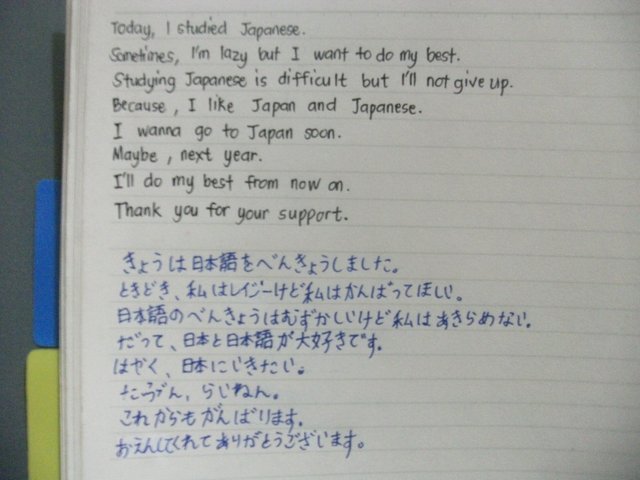 Today, I studied Japanese.
Sometimes, I'm lazy but I want to do my best.
Studying Japanese is difficult but I'll not give up.
Because, I like Japan and Japanese.
I wanna go to Japan soon.
Maybe, next year.
I'll do my best from now on.
Thank you for your support.
きょうは日本語をべんきょうしました。
ときどき、私はレイジーけど私はがんばってほしい。
日本語のべんきょうはむずかしいけど私はあきらめない。
だって、日本と日本語が大好きです。
はやく、日本にいきたい。
たぶん、らいねん。
これからもがんばります。
おえんしてくれてありがとうございます。